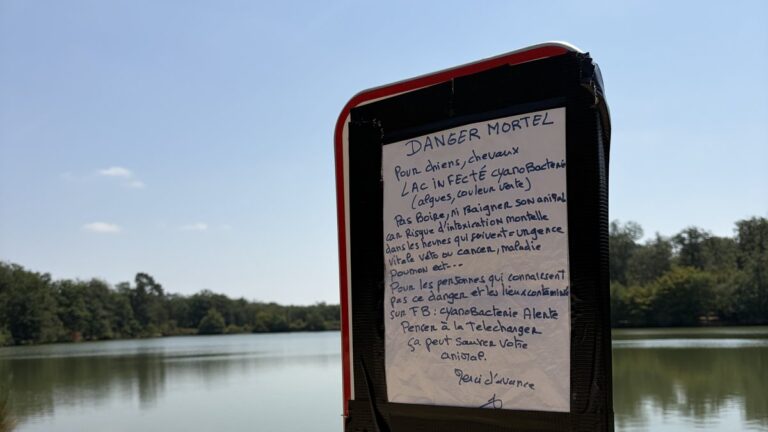 DANGER MORTEL
Pour chiens, chevaux
LAC INFECTÉ cyanoBacterie
(algues, couleur verte)
Pas Boire, ni Baigner son animal
car Risque d'intoxication mortelle
dans les heures qui suivent - urgence
vitale véto ou cancer, maladie
poumon ect...
Pour les personnes qui connaissent
pas ce danger et les lieux contaminés
sur FB: cyanoBacterie Alerte
Penser à la Telecharger
ça peut sauver votre
animal.
Merci d'avance